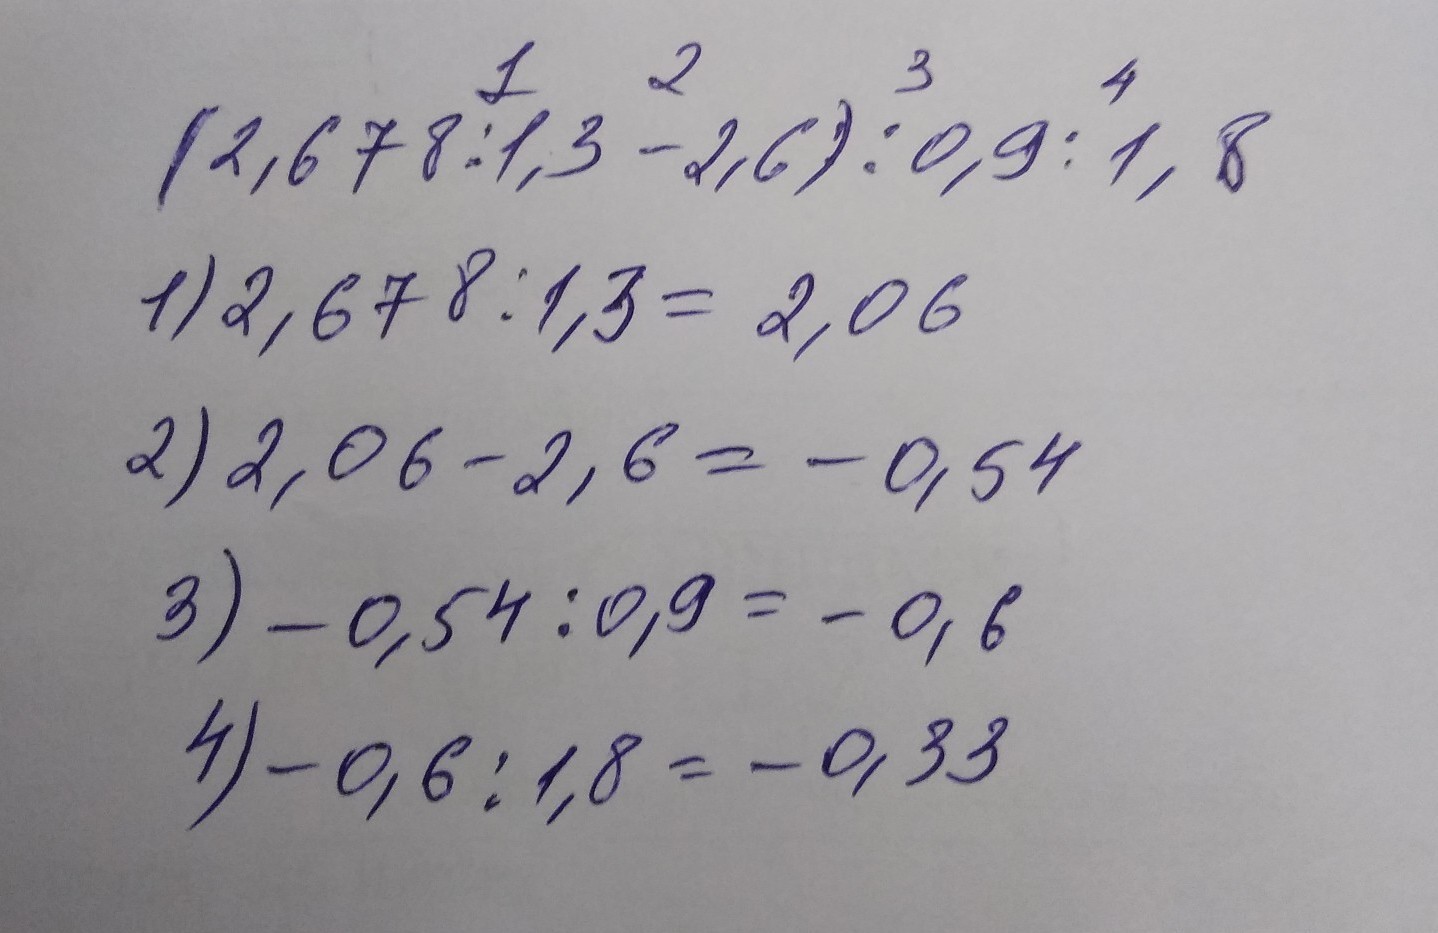 1 2 3 4
(2,678:1,3-2,6):0,9:1,8
1) 2,678:1,3= 2,06
2) 2,06-2,6= -0,54
3) -0,54:0,9= -0,6
4) -0,6:1,8= -0,33